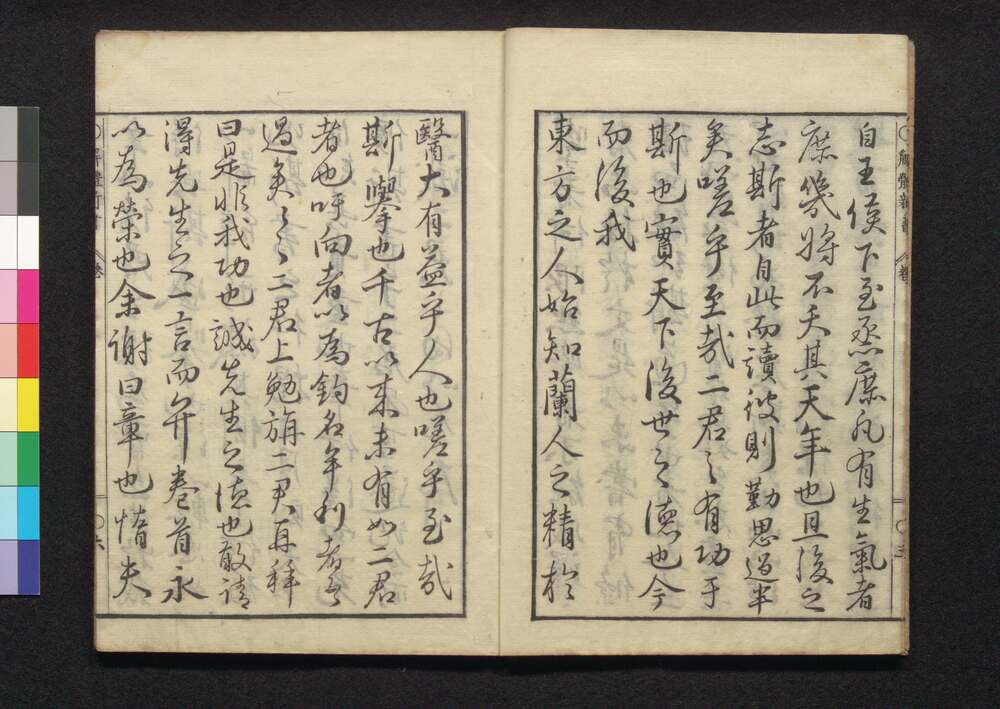 自王侯下至烝庶凡有生氣者
庶幾將不夭其天年也且後之
志斯者自此而讀彼則勤思過半
矣嗟乎至哉二君之有功于
斯也實天下後世之德也今
而後我
東方之人始知蘭人之精於
醫大有益乎人也嗟乎至哉
斯擧也千古以來未有如二君
者也吁向者以為釣名牟利者吾
過矣々々二君上勉旃二君再拜
曰是非我功也誠先生之德也敢請
得先生之一言而弁卷首永
以為榮也余謝曰章也惰夫